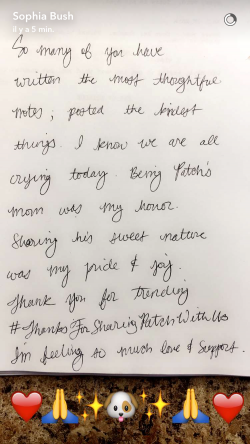 Sophia Bush
Il y a 5 min.
So many of you have
written the most thoughtful
notes, posted the kindest
things. I know we are all
crying today. Being Patch's
mom was my honor.
Sharing his sweet nature
was my pride & joy.
Thank you for trending
#ThanksForSharingPatchWithUs
I'm feeling so much love & support.